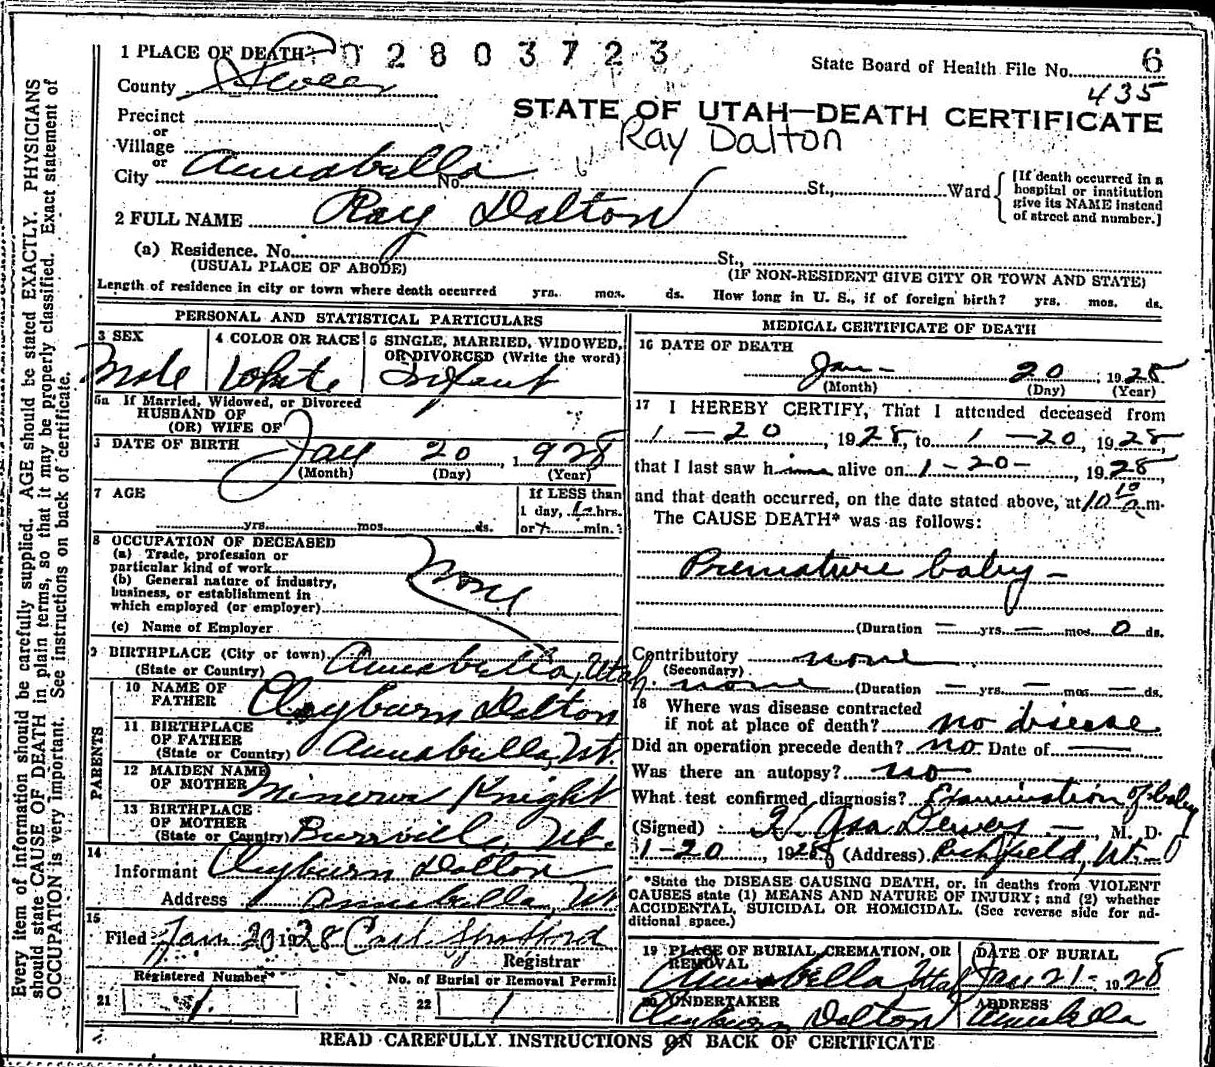 1 PLACE OF DEATH 02803723
State Board of Health File No. 6
435
County Sevier
STATE OF UTAH—DEATH CERTIFICATE
Ray Dalton
Precinct
or
Village
or
City Annabella No. St., Ward
[If death occurred in a hospital or institution give its NAME instead of street and number.]
2 FULL NAME Ray Dalton
(a) Residence. No. St.,
(USUAL PLACE OF ABODE) (IF NON-RESIDENT GIVE CITY OR TOWN AND STATE)
Length of residence in city or town where death occurred yrs. mos. ds. How long in U. S., if of foreign birth? yrs. mos. ds.
PERSONAL AND STATISTICAL PARTICULARS
3 SEX
Male
4 COLOR OR RACE
White
5 SINGLE, MARRIED, WIDOWED, OR DIVORCED (Write the word)
Infant
5a If Married, Widowed, or Divorced
HUSBAND OF
(OR) WIFE OF
DATE OF BIRTH Jan 20, 1928
(Month) (Day) (Year)
7 AGE
yrs. mos. ds.
If LESS than
1 day, hrs.
or min.
8 OCCUPATION OF DECEASED
(a) Trade, profession or
particular kind of work
(b) General nature of industry,
business, or establishment in
which employed (or employer)
None
(c) Name of Employer
9 BIRTHPLACE (City or town) Annabella, Utah.
(State or Country)
PARENTS
10 NAME OF
FATHER Clayburn Dalton
11 BIRTHPLACE
OF FATHER
(State or Country) Annabella, Ut.
12 MAIDEN NAME
OF MOTHER Minerva Knight
13 BIRTHPLACE
OF MOTHER
(State or Country) Burrville, Ut.
14
Informant Clayburn Dalton
Address Annabella, Ut
15
Filed Jan 20 1928
Registrar
Registered Number
21 1
No. of Burial or Removal Permit
22 1
MEDICAL CERTIFICATE OF DEATH
16 DATE OF DEATH
Jan- 20, 1928
(Month) (Day) (Year)
17 I HEREBY CERTIFY, That I attended deceased from
1-20, 1928, to 1-20, 1928,
that I last saw him alive on 1-20-, 1928,
and that death occurred, on the date stated above, at 10 10 a m.
The CAUSE DEATH* was as follows:
Premature baby-
(Duration - yrs. - mos. 0 ds.
Contributory none
(Secondary)
none (Duration - yrs. - mos. - ds.
18 Where was disease contracted
if not at place of death? no disease
Did an operation precede death? no Date of —
Was there an autopsy? no
What test confirmed diagnosis? Examination of baby
(Signed) H Asa Dewey -, M. D.
1-20, 1928 (Address) Richfield, Ut.
*State the DISEASE CAUSING DEATH, or, in deaths from VIOLENT
CAUSES state (1) MEANS AND NATURE OF INJURY; and (2) whether
ACCIDENTAL, SUICIDAL OR HOMICIDAL. (See reverse side for additional space.)
19 PLACE OF BURIAL, CREMATION, OR
REMOVAL
Annabella Utah
DATE OF BURIAL
Jan 21- 1928
20 UNDERTAKER
Clayburn Dalton
ADDRESS
Annabella
READ CAREFULLY INSTRUCTIONS ON BACK OF CERTIFICATE
Every item of information should be carefully supplied. AGE should be stated EXACTLY. PHYSICIANS
should state CAUSE OF DEATH in plain terms, so that it may be properly classified. Exact statement of
OCCUPATION is very important. See instructions on back of certificate.